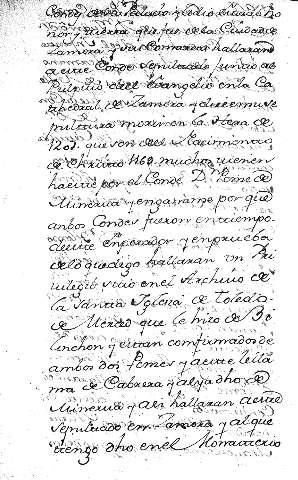 Conde de su Palacio y dio
nor, y tierra que fue de la Ciudad de
Zamora, y su Comarca hallaran
a este Conde sepultado junto al
Pulpito del Evangelio en la Ca
thedral, de Zamora, y dice en su se
pultura morir en la Hera de
1207 que son del Nacimiento
de Christo 1169. muchos tienen
ha este por el Conde Dn Ponce de
Minerva y engañanse por que
anbos Condes fueron en tiempo
de este enperador y en prueba
de lo que digo hallaran un Pri
vilegio suio en el Archivo de
la Santa Iglesia de Toledo
de Merced que le hizo de Be
linchon y estan confirmados de
ambos dos Ponces y a este le lla
ma de Cabrera y al ya dho de
Minerva y assi hallaran a este
sepultado en Zamora y al que
tengo dho en el Monasterio